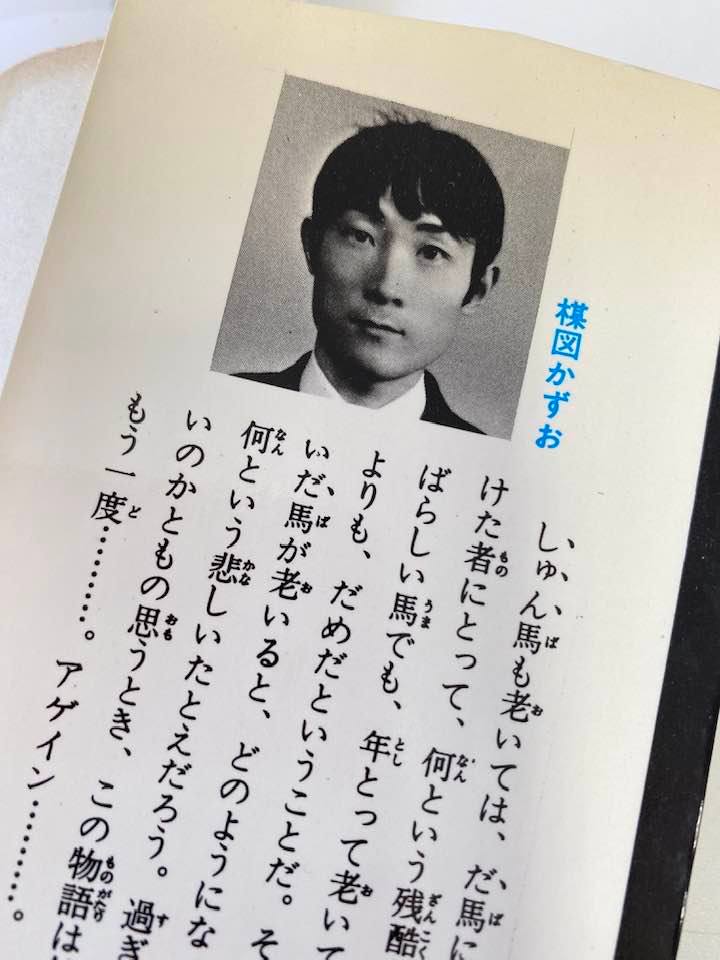 楳図かずお
しゅん馬も老いては、だ馬に
けた者にとって、何という残酷
ばらしい馬でも、年とって老いて
よりも、だめだということだ。そ
いだ馬が老いると、どのようにな
何という悲しいたとえだろう。過ぎ
いのかともの思うとき、この物語は
もう一度…………。アゲイン…………。